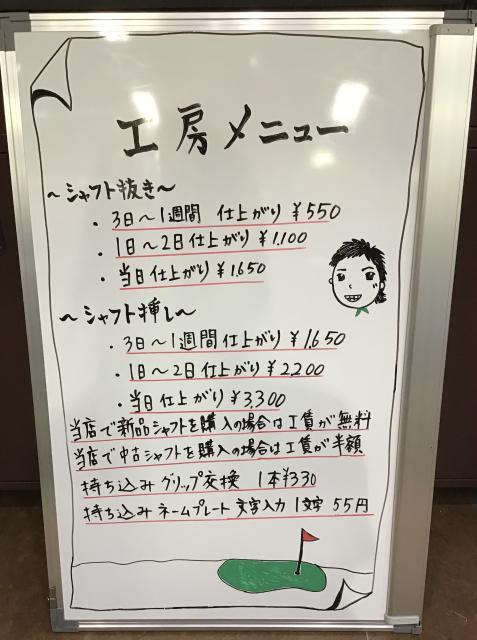 工房メニュー
～シャフト抜き～
・3日～1週間 仕上がり ¥550
・1日～2日仕上がり ¥1,100
・当日仕上がり ¥1,650
～シャフト挿し～
・3日～1週間仕上がり ¥1,650
・1日～2日仕上がり ¥2,200
・当日仕上がり ¥3,300
当店で新品シャフトを購入の場合は工賃が無料
当店で中古シャフトを購入の場合は工賃が半額
持ち込みグリップ交換 1本¥330
持ち込みネームプレート文字入力 1文字 55円